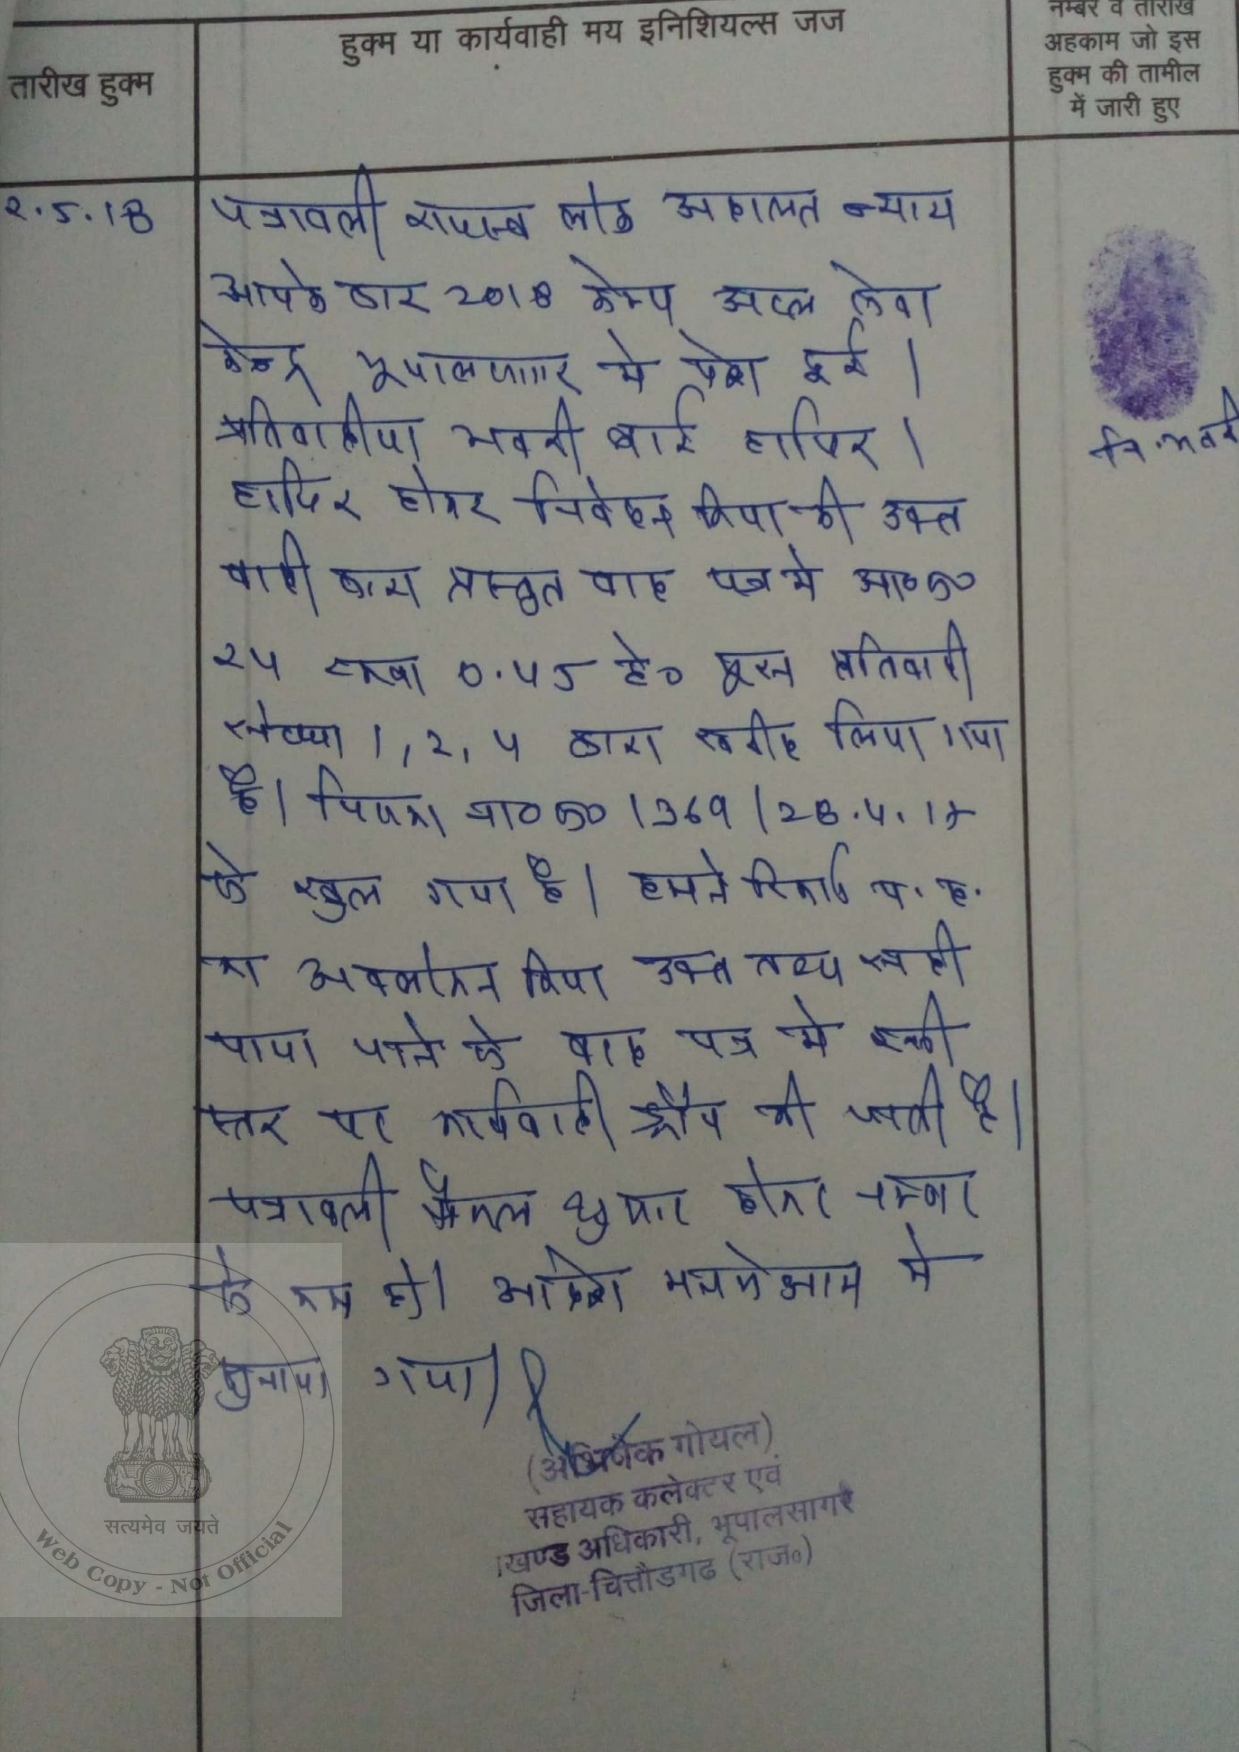 हुक्म या कार्यवाही मय इनिशियल्स जज
तारीख हुक्म
नम्बर व तारीख
अहकाम जो इस
हुक्म की तामील
में जारी हुए
2.5.18
पत्रावली राजस्व लोक अदालत न्याय
आपके द्वार 2018 केम्प अटल सेवा
केन्द्र भूपालसागर मे पेश हुई।
प्रतिवादीया भवरी बाई हाजिर।
हाजिर होकर निवेदन किया की उक्त
वादी द्वारा प्रस्तुत वाद पत्र मे आ०न०
24 रकबा 0.45 हे०
प्रतिवादी
संख्या 1,2,4 द्वारा खरीद लिया गया
है। जिसका ना०न० 1369/28.4.15
को खुल गया है। हमने रिकार्ड प.ह.
का अवलोकन किया उक्त तथ्य सही
पाया जाने से वाद पत्र मे इसी
स्तर पर कार्यवाही ड्रोप की जाती है।
पत्रावली फैसल शुमार होकर नम्बर
से कम हो। आदेश मजमेआम मे
सुनाया गया।
नि.भवरी
(अभिषेक गोयल)
सहायक कलेक्टर एवं
खण्ड अधिकारी, भूपालसागर
जिला-चित्तौडगढ (राज०)
सत्यमेव जयते
Web Copy - Not Official